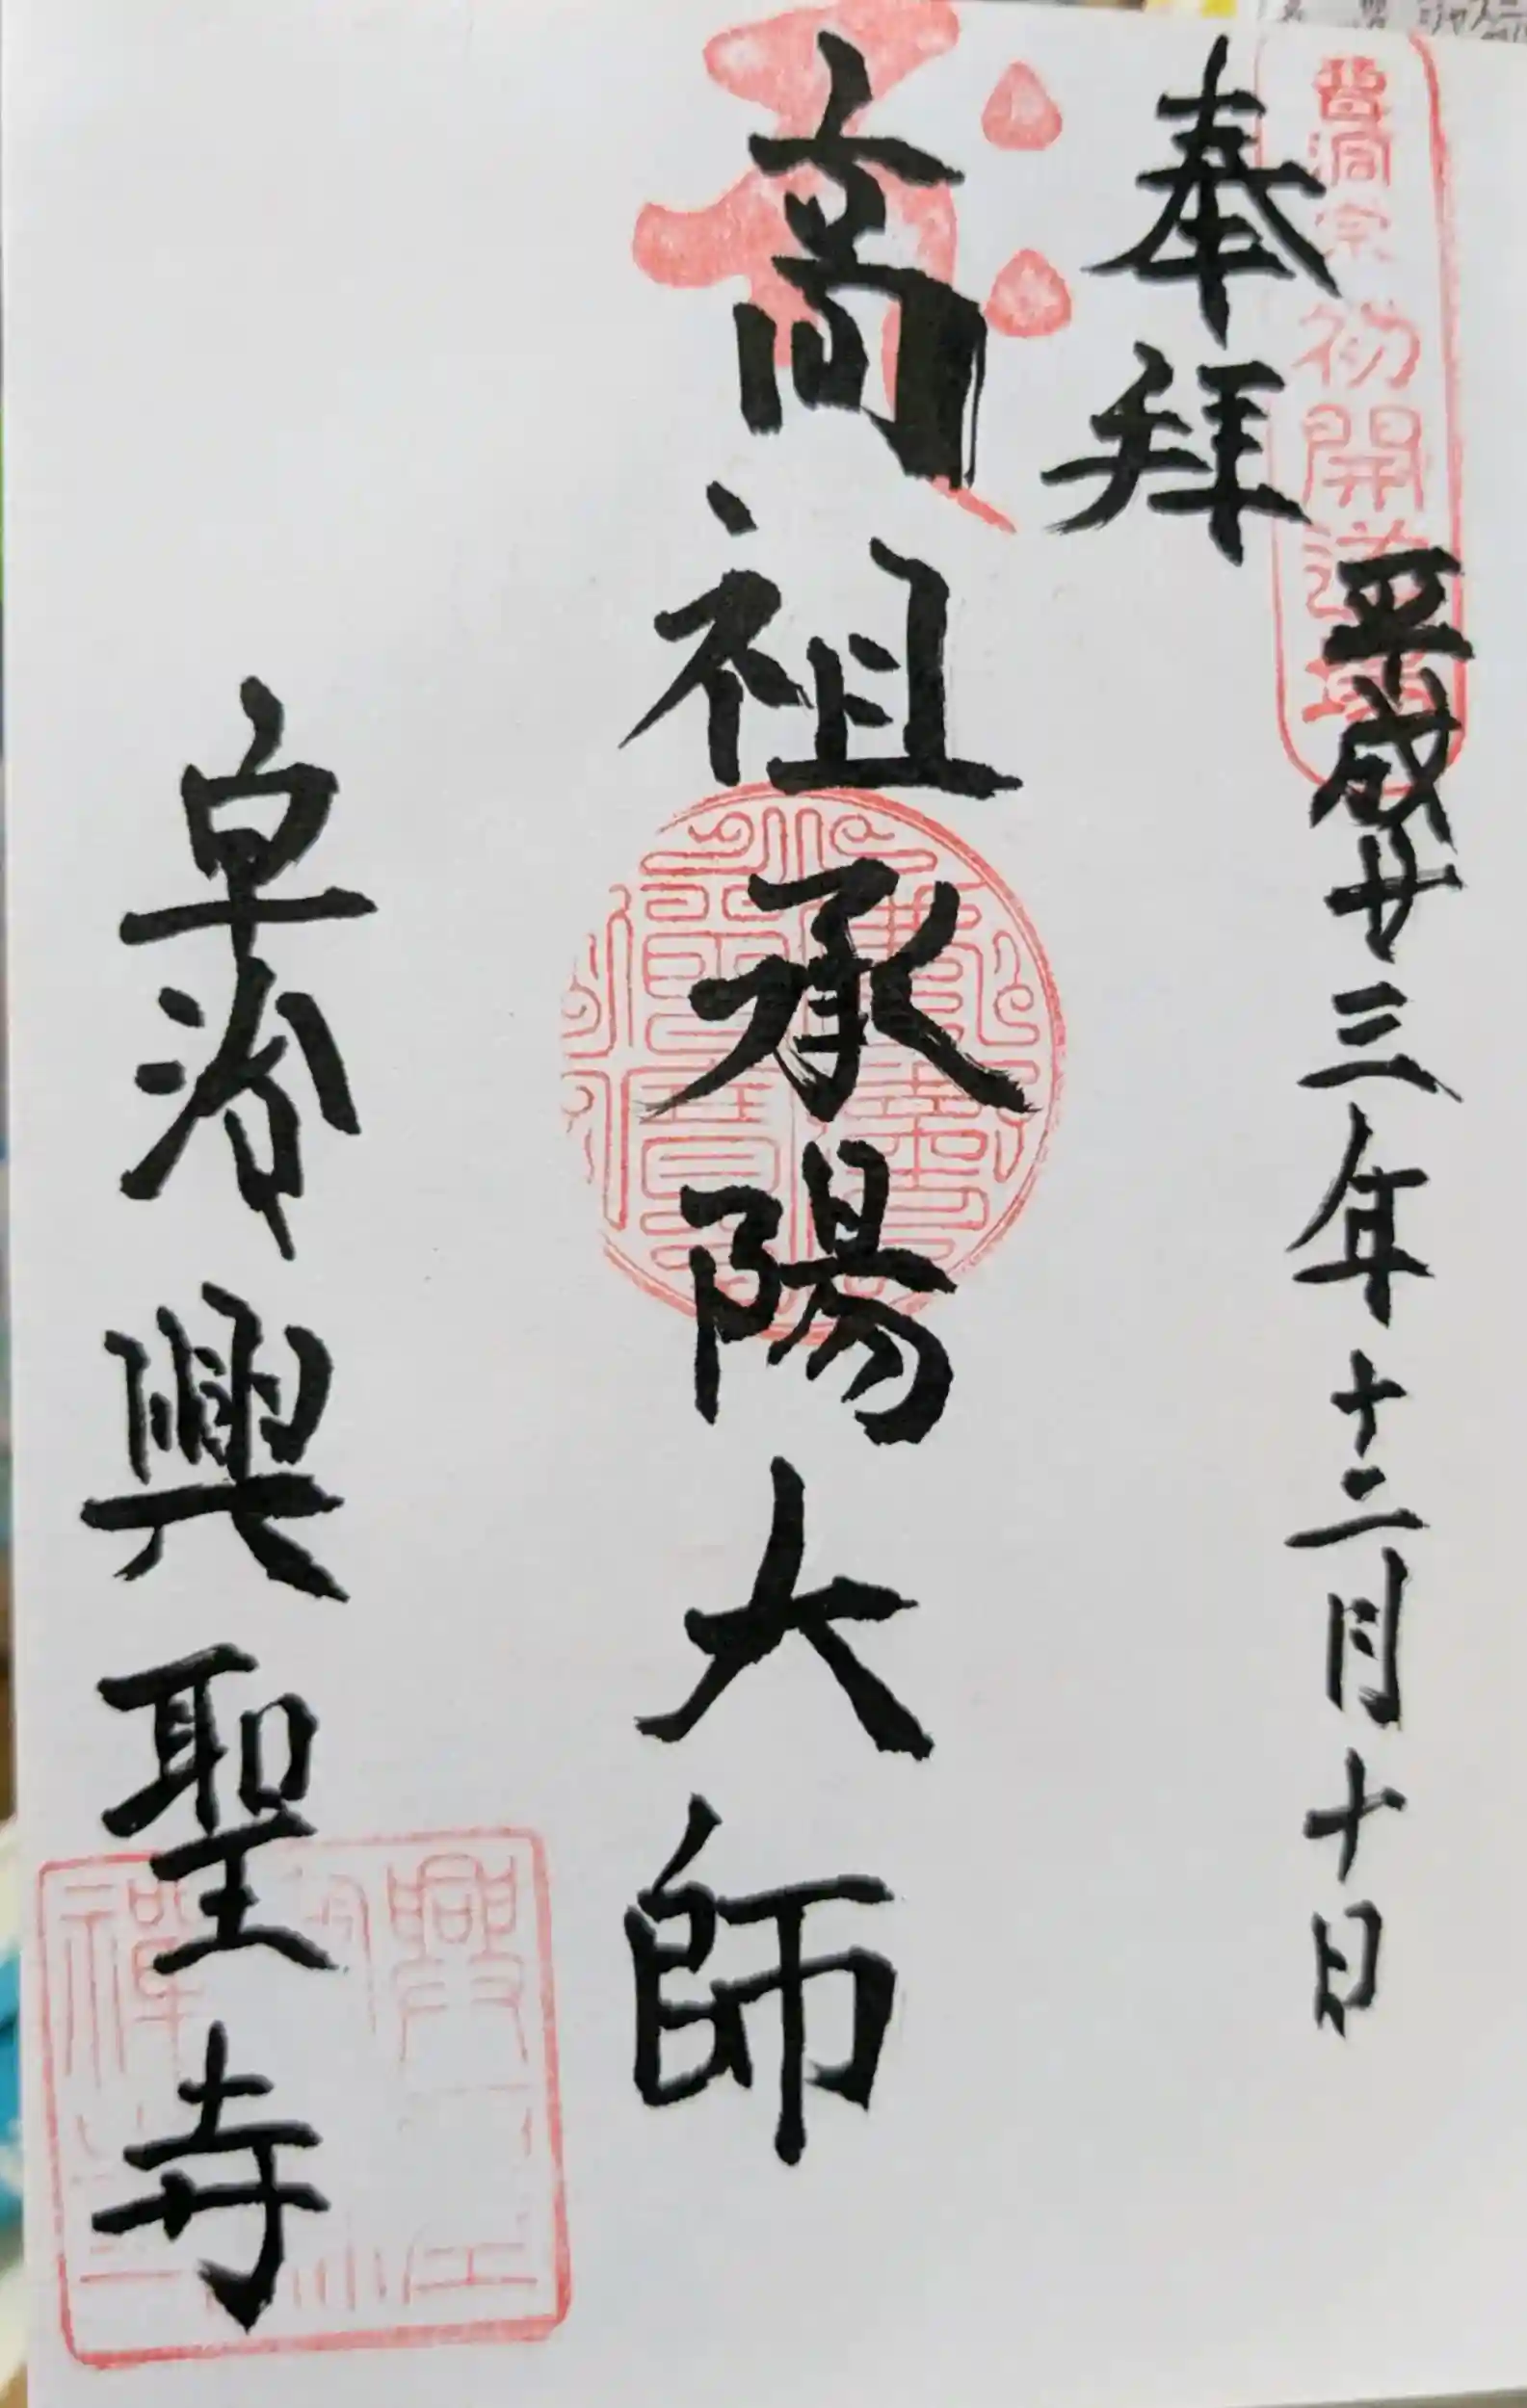 曹洞宗 初開道場
奉拝
平成廿三年十二月十日
高祖承陽大師
宇治 興聖寺
佛法僧寶